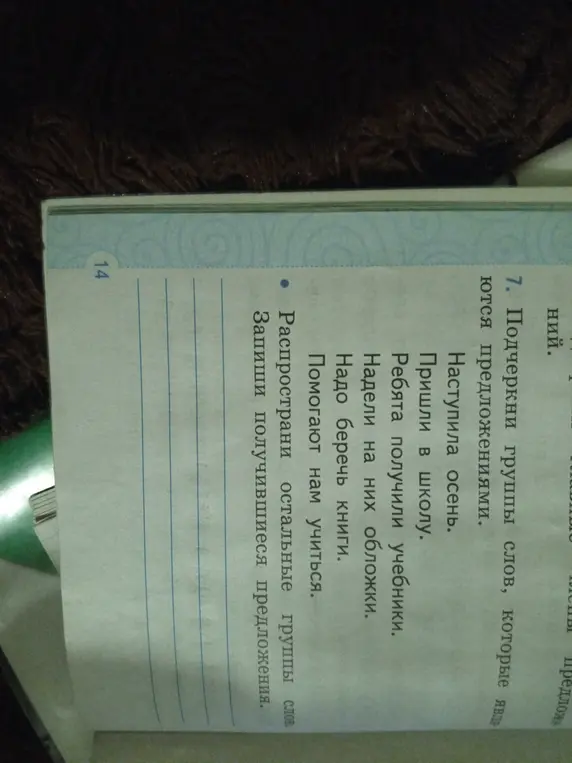 ний.
7. Подчеркни группы слов, которые явля-
ются предложениями.
Наступила осень.
Пришли в школу.
Ребята получили учебники.
Надели на них обложки.
Надо беречь книги.
Помогают нам учиться.
• Распространи остальные группы слов.
Запиши получившиеся предложения.
14